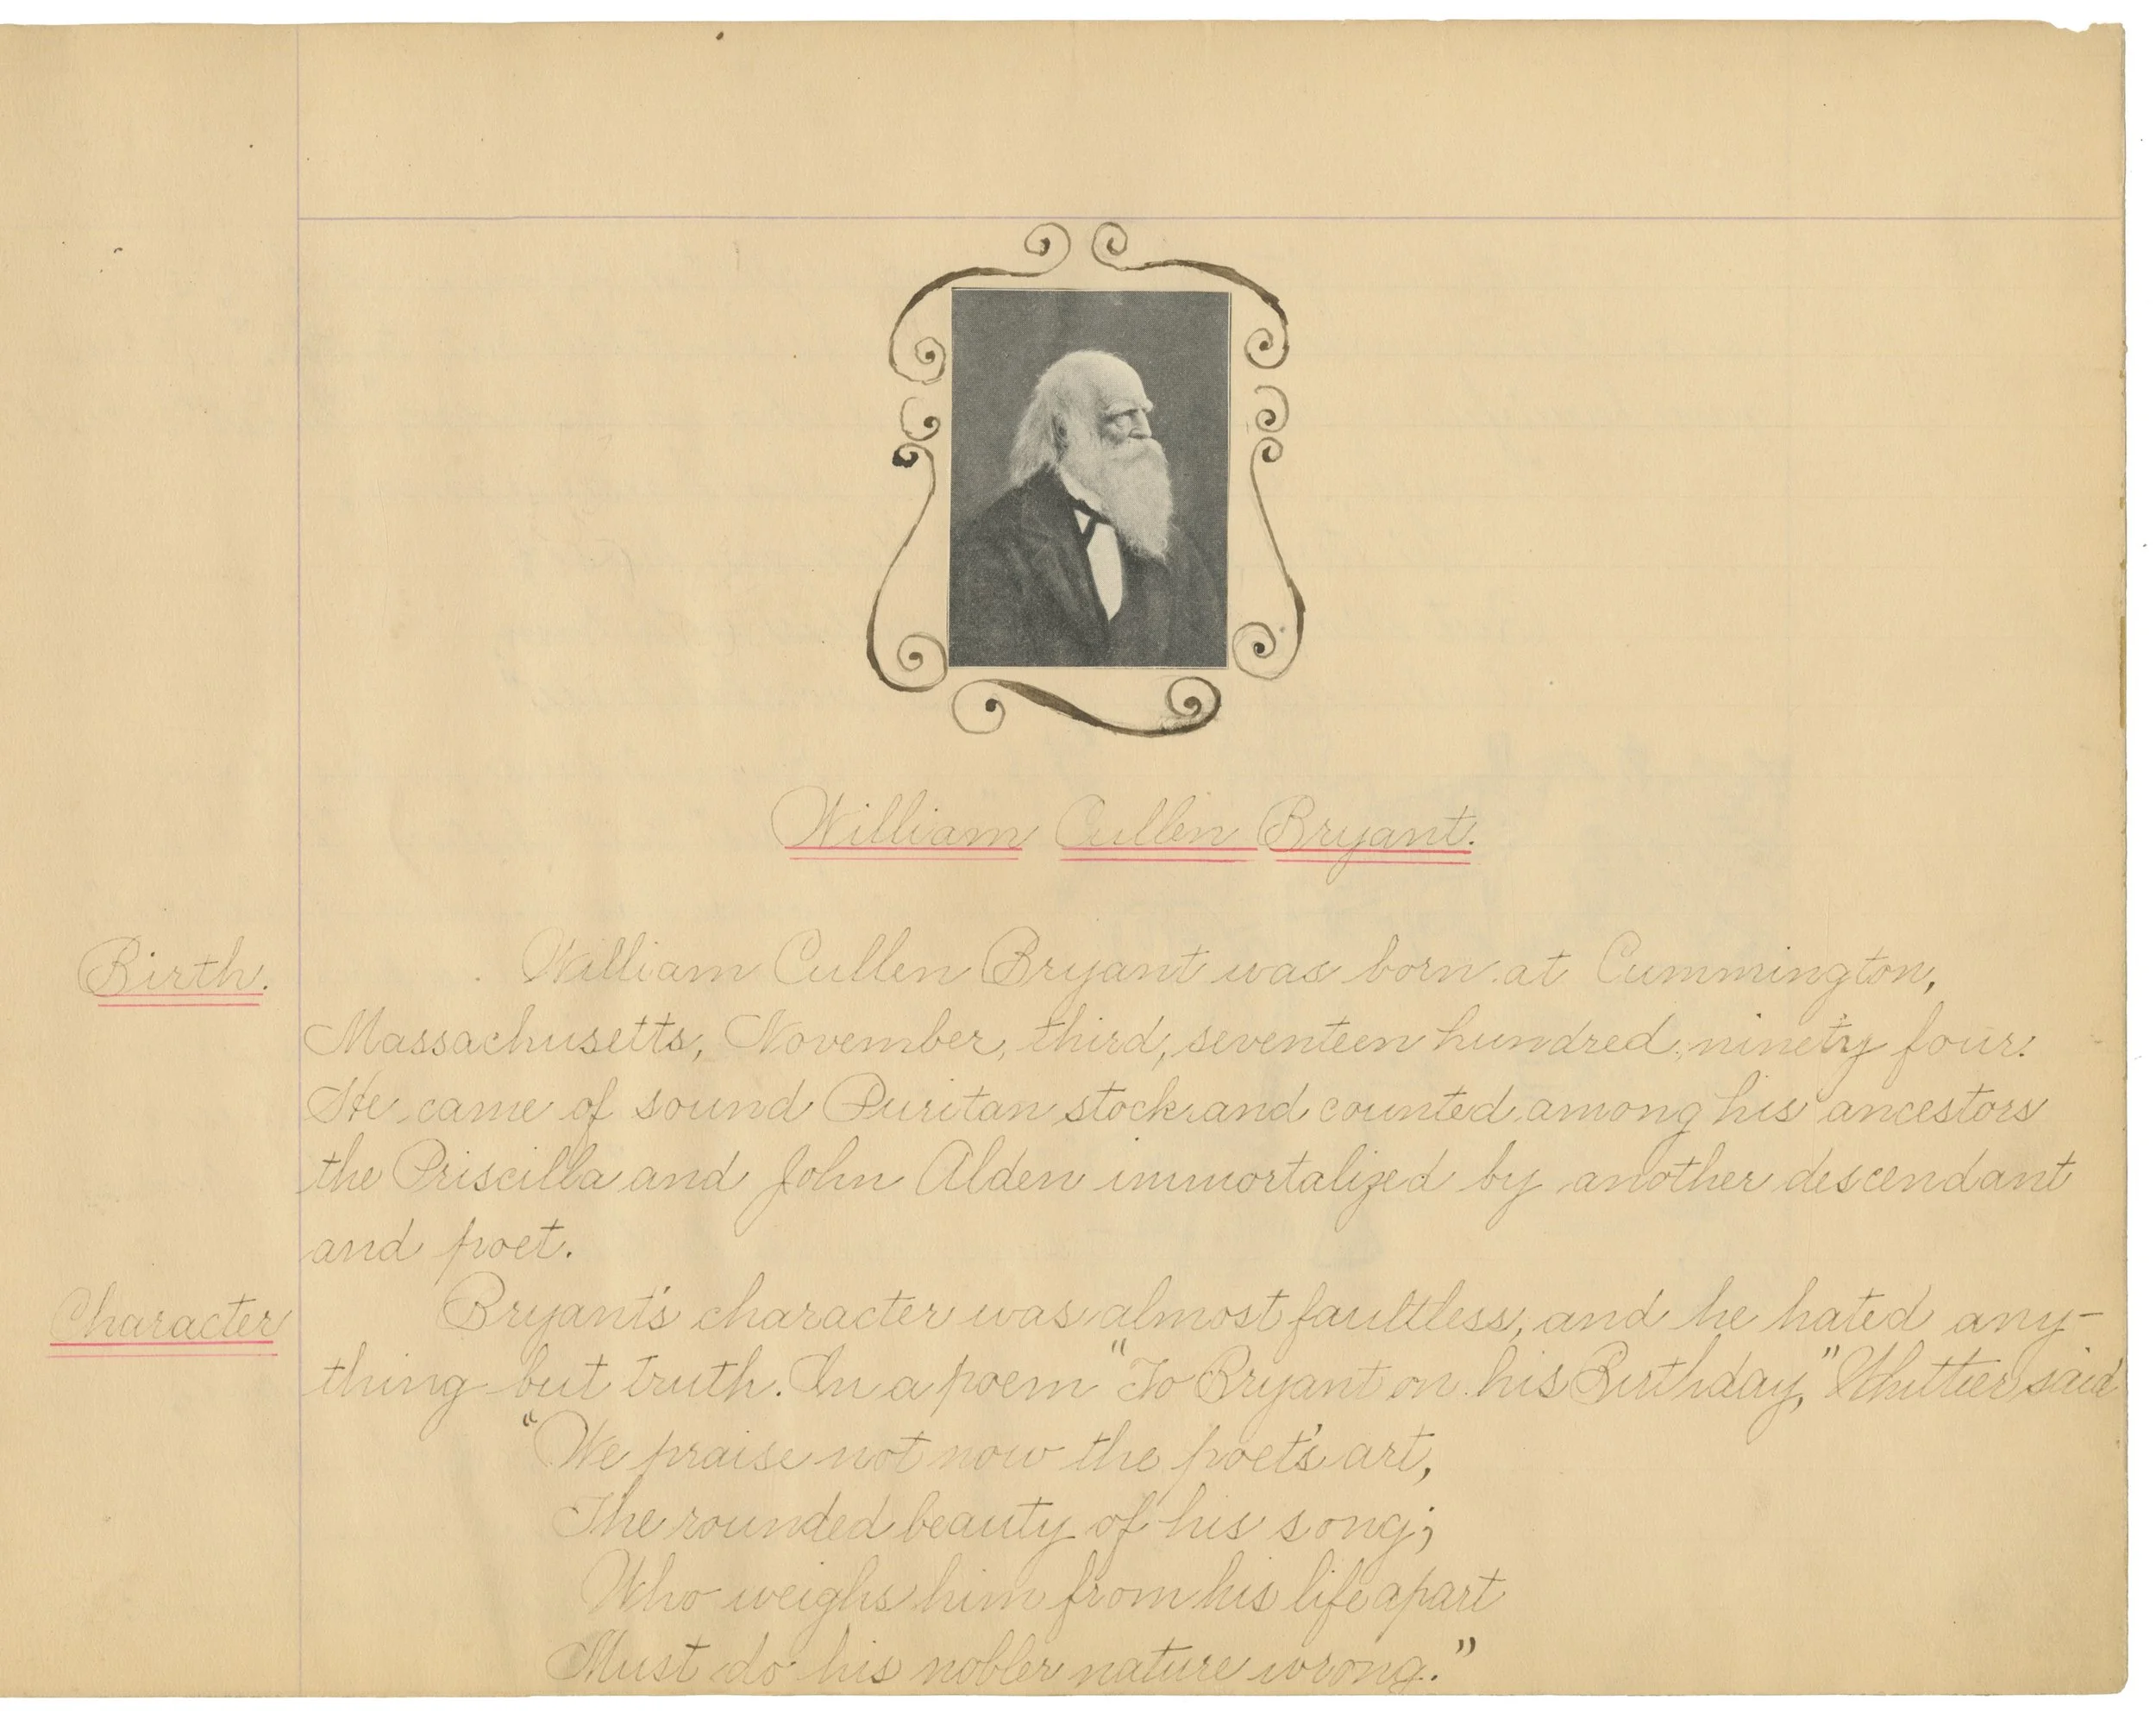 William Cullen Bryant.
Birth.
William Cullen Bryant was born at Cummington,
Massachusetts, November, third, seventeen hundred, ninety four.
He came of sound Puritan stock and counted among his ancestors
the Priscilla and John Alden immortalized by another descendant
and poet.
Character
Bryant's character was almost faultless, and he hated any-
thing but truth. In a poem "To Bryant on his Birthday," Whittier said
"We praise not now the poet's art,
The rounded beauty of his song;
Who weighs him from his life apart
Must do his nobler nature wrong."